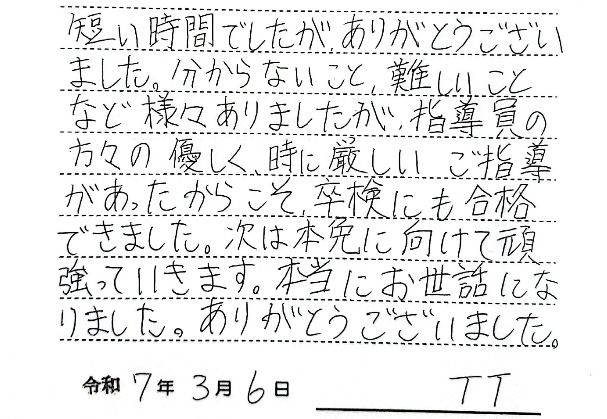 短い時間でしたが、ありがとうござい
ました。分からないこと、難しいこと
など様々ありましたが、指導員の
方々の優しく、時に厳しいご指導
があったからこそ、卒検にも合格
できました。次は本免に向けて頑
強っていきます。本当にお世話にな
りました。ありがとうございました。
令和 7年 3月 6日 TT